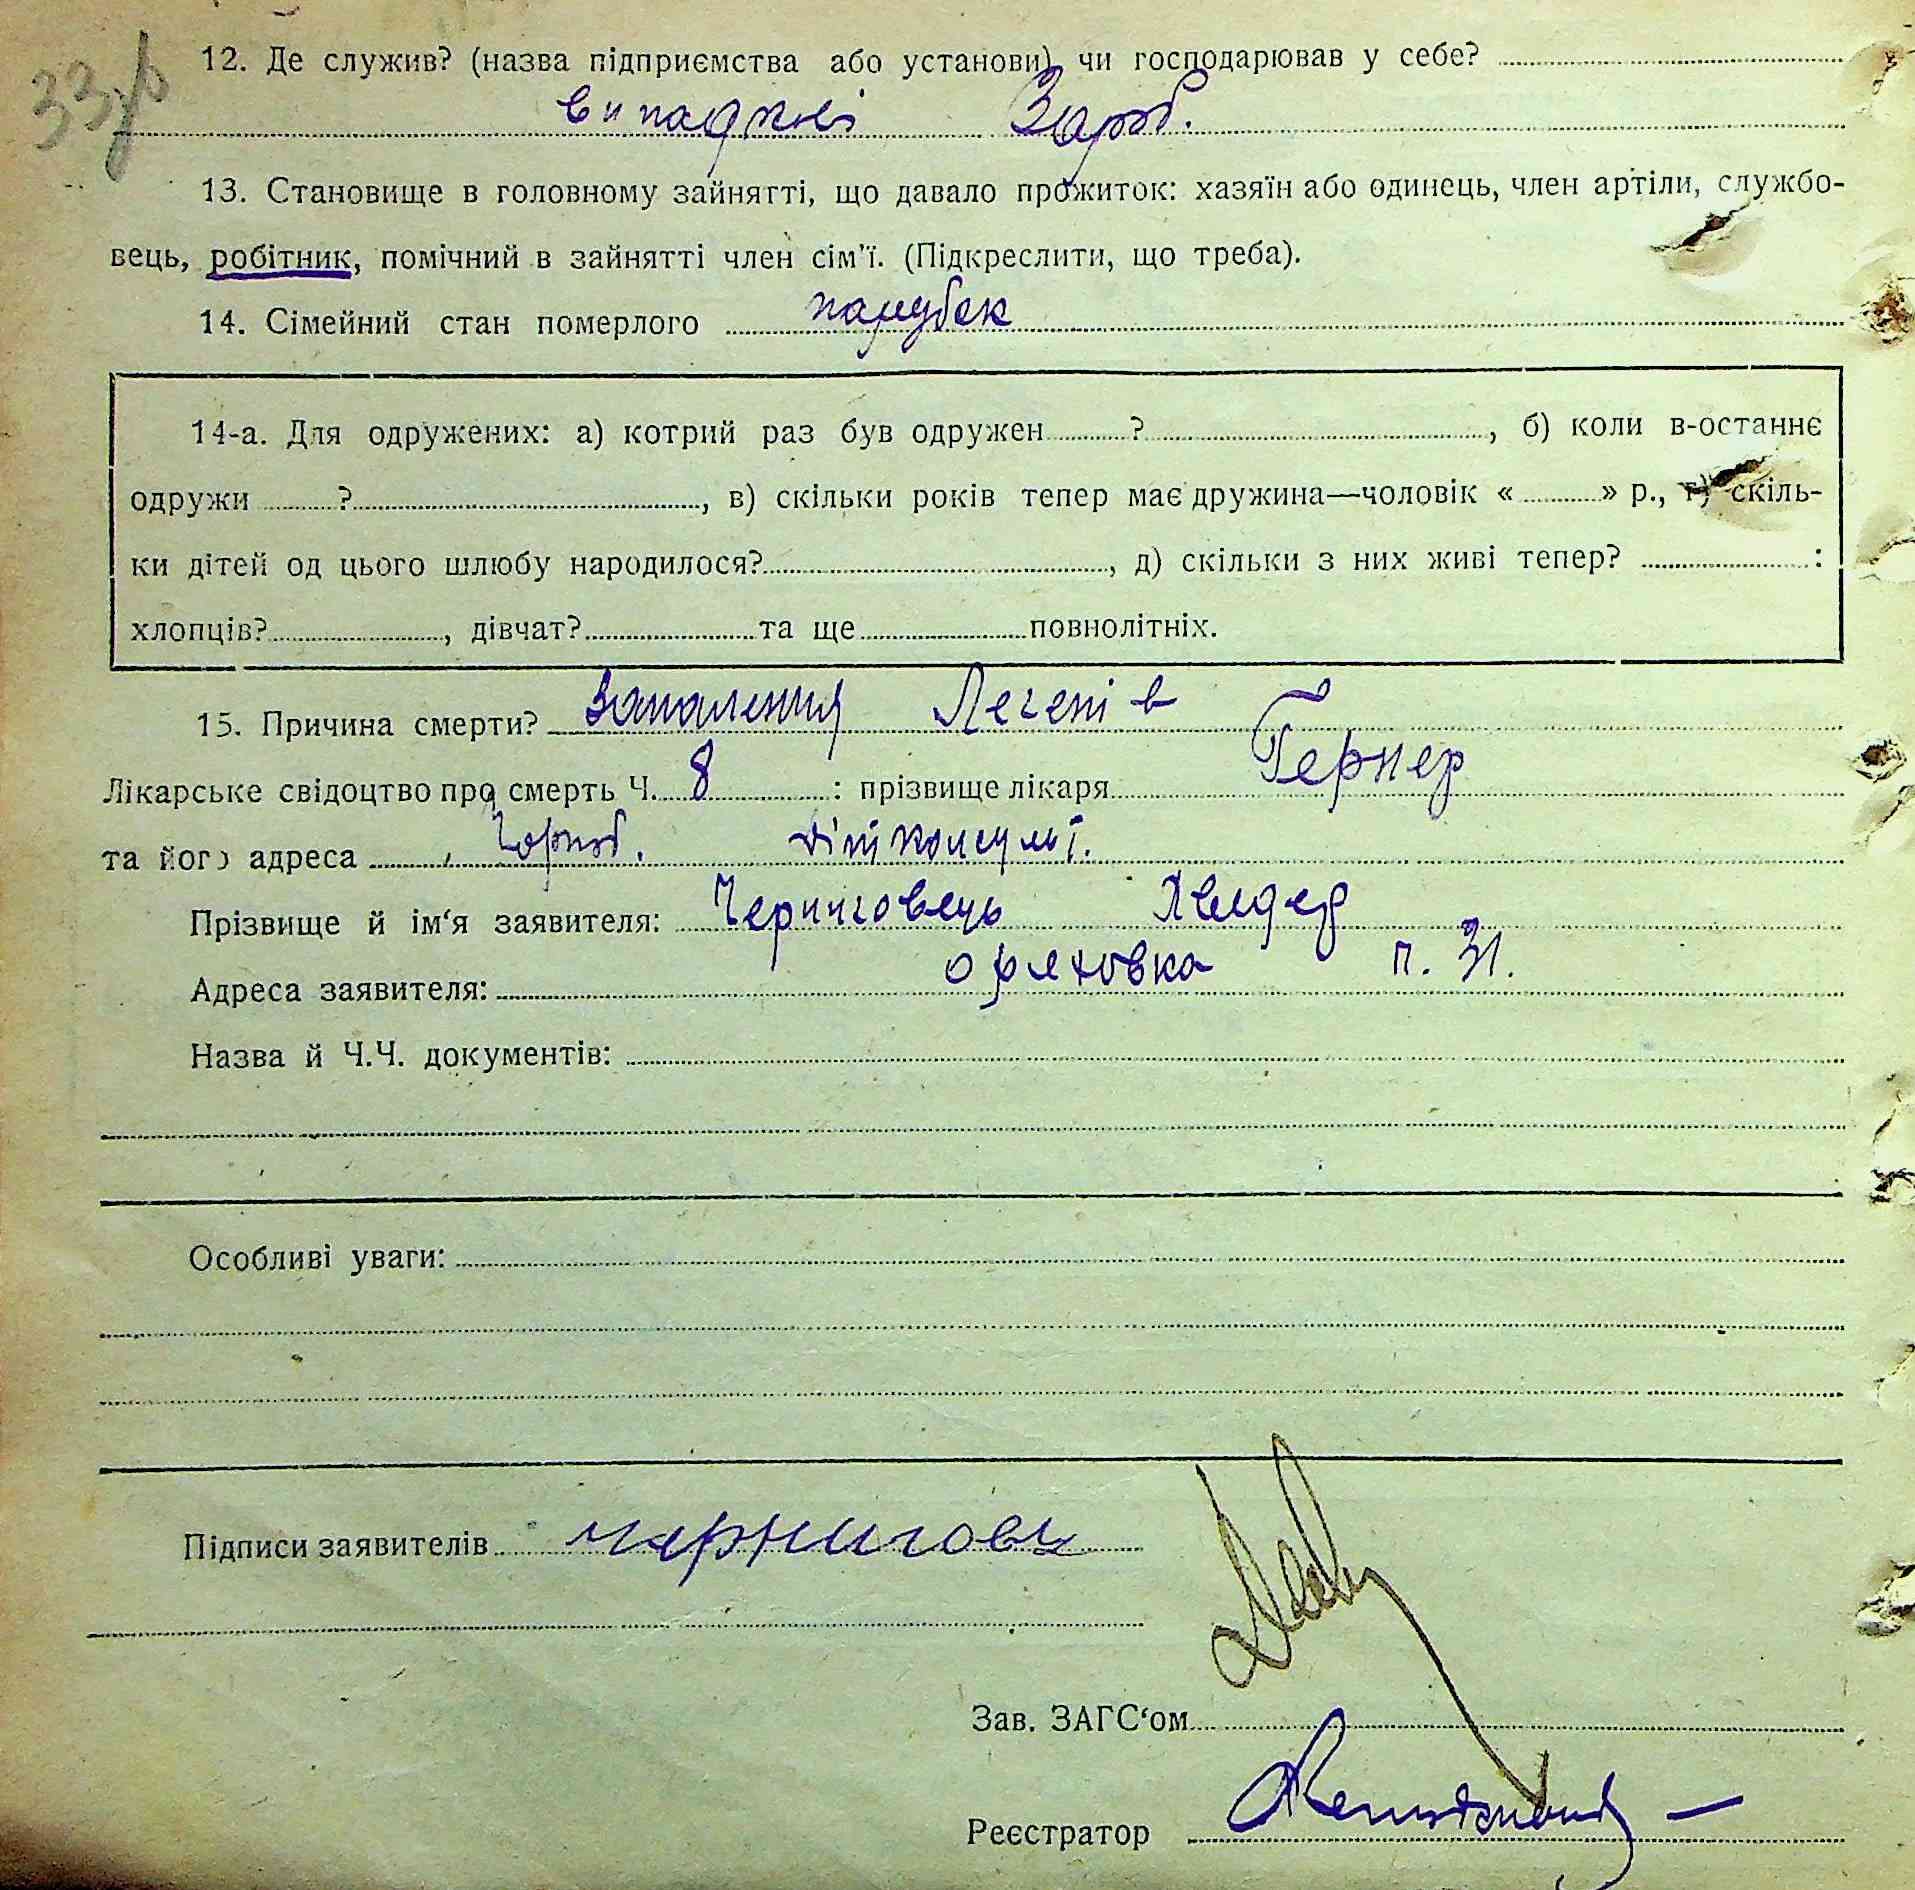 33зв
12. Де служив? (назва підприємства або установи) чи господарював у себе?
випадкові Зароб.
13. Становище в головному зайнятті, що давало прожиток: хазяїн або одинець, член артіли, службо-
вець, робітник, помічний в зайнятті член сім'ї. (Підкреслити, що треба).
14. Сімейний стан померлого парубок
14-а. Для одружених: а) котрий раз був одружен ? , б) коли в-останнє
одружи ? , в) скільки років тепер має дружина—чоловік « » р., г) скіль-
ки дітей од цього шлюбу народилося? , д) скільки з них живі тепер? :
хлопців? , дівчат? та ще повнолітніх.
15. Причина смерти? Запалення Легенів
Лікарське свідоцтво про смерть Ч. 8 : прізвище лікаря Гернер
та його адреса
Прізвище й ім'я заявителя: Черниговець
Адреса заявителя: оряховка п. 31.
Назва й Ч.Ч. документів:
Особливі уваги:
Підписи заявителів
Зав. ЗАГС'ом
Реєстратор